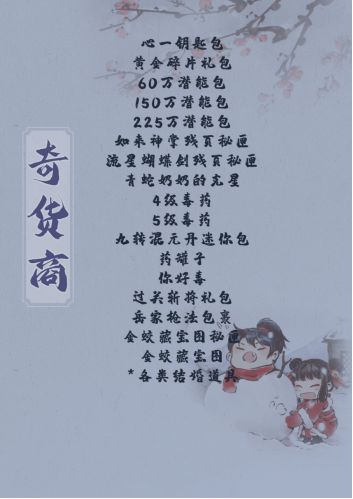 奇货商
心一钥匙包
黄金碎片礼包
60万潜能包
150万潜能包
225万潜能包
如来神掌残頁秘匣
流星蝴蝶剑残頁秘匣
青蛇奶奶的克星
4级毒药
5级毒药
九转混元丹迷你包
药罐子
你好毒
过关斩将礼包
岳家枪法包裹
金蛟藏宝图秘匣
金蛟藏宝图
*各类结婚道具